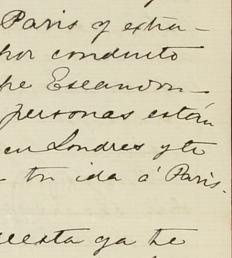 Paris y extra-
por conducto
pe Escandon-
personas están
en Londres y te
tu ida á Paris.
uesta ya he